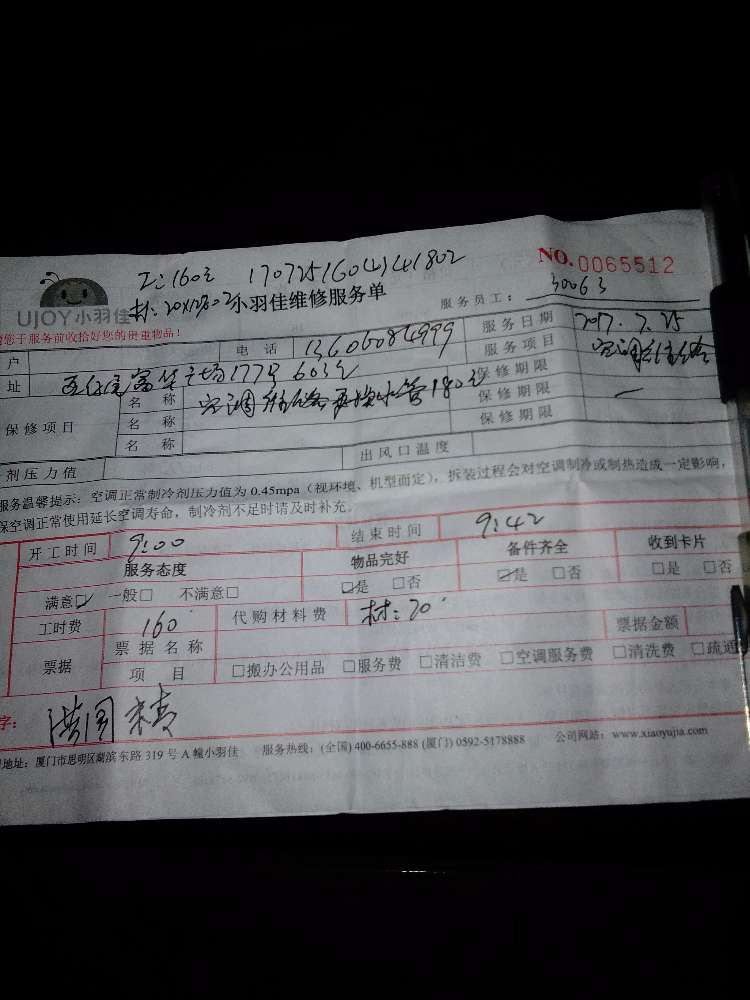 工:160元 170725160(4)41802
NO.0065512
UJOY小羽佳
材:20X1
小羽佳维修服务单
服务员工: 30063
您于服务前收拾好您的贵重物品!
户 电 话 13606084999 服务日期 2017.7.25
址 富华广场177号603 服务项目 空调维修
保修项目 名 称 空调 换水管180元 保修期限
名 称 保修期限
名 称 保修期限
剂压力值 出风口温度
服务温馨提示:空调正常制冷剂压力值为 0.45mpa(视环境、机型而定),拆装过程会对空调制冷或制热造成一定影响,
保空调正常使用延长空调寿命,制冷剂不足时请及时补充。
开工时间 9:00 结束时间 9:42
服务态度 物品完好 备件齐全 收到卡片
满意☑ 一般□ 不满意□ ☑是 □否 ☑是 □否 □是 □否
工时费 160 代购材料费 材:20
票据 票据名称 票据金额
项 目 □搬办公用品 □服务费 □清洁费 □空调服务费 □清洗费 □疏通
字:
地址:厦门市思明区湖滨东路 319 号 A 幢小羽佳 服务热线:(全国) 400-6655-888 (厦门) 0592-5178888 公司网站:www.xiaoyujia.com